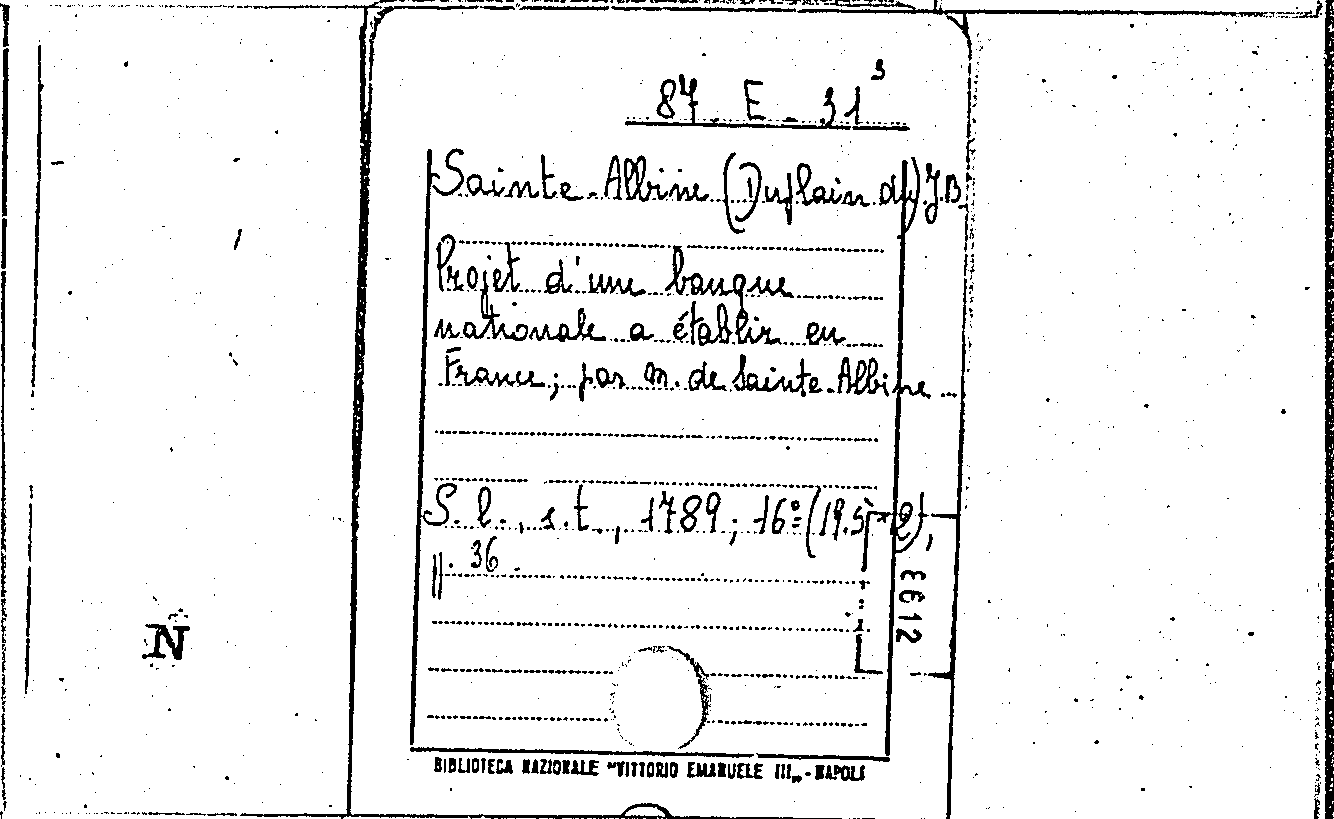 87. E. 31³
Sainte-Albine (Duflain de) J.B.
Projet d'une banque
nationale a établir en
France; par m. de Sainte-Albine...
S. l., s. t., 1789; 16º (19.5 × 12),
36.
N
BIBLIOTECA NAZIONALE "VITTORIO EMANUELE III„ - NAPOLI